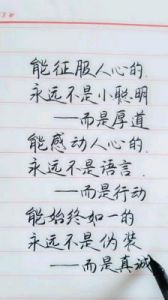 能征服人心的.
永远不是小聪明
——而是厚道
能感动人心的.
永远不是语言.
——而是行动
能始终如一的
永远不是伪装
——而是真诚